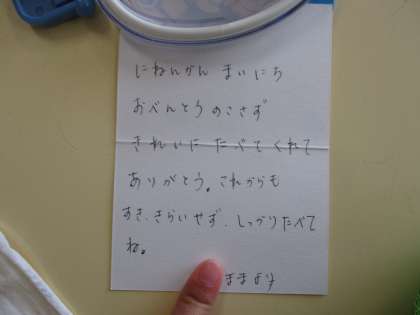 にねんかん まいにち
おべんとう のこさず
きれいに たべてくれて
ありがとう。これからも
すき、きらいせず、しっかりたべて
ね。
ままより